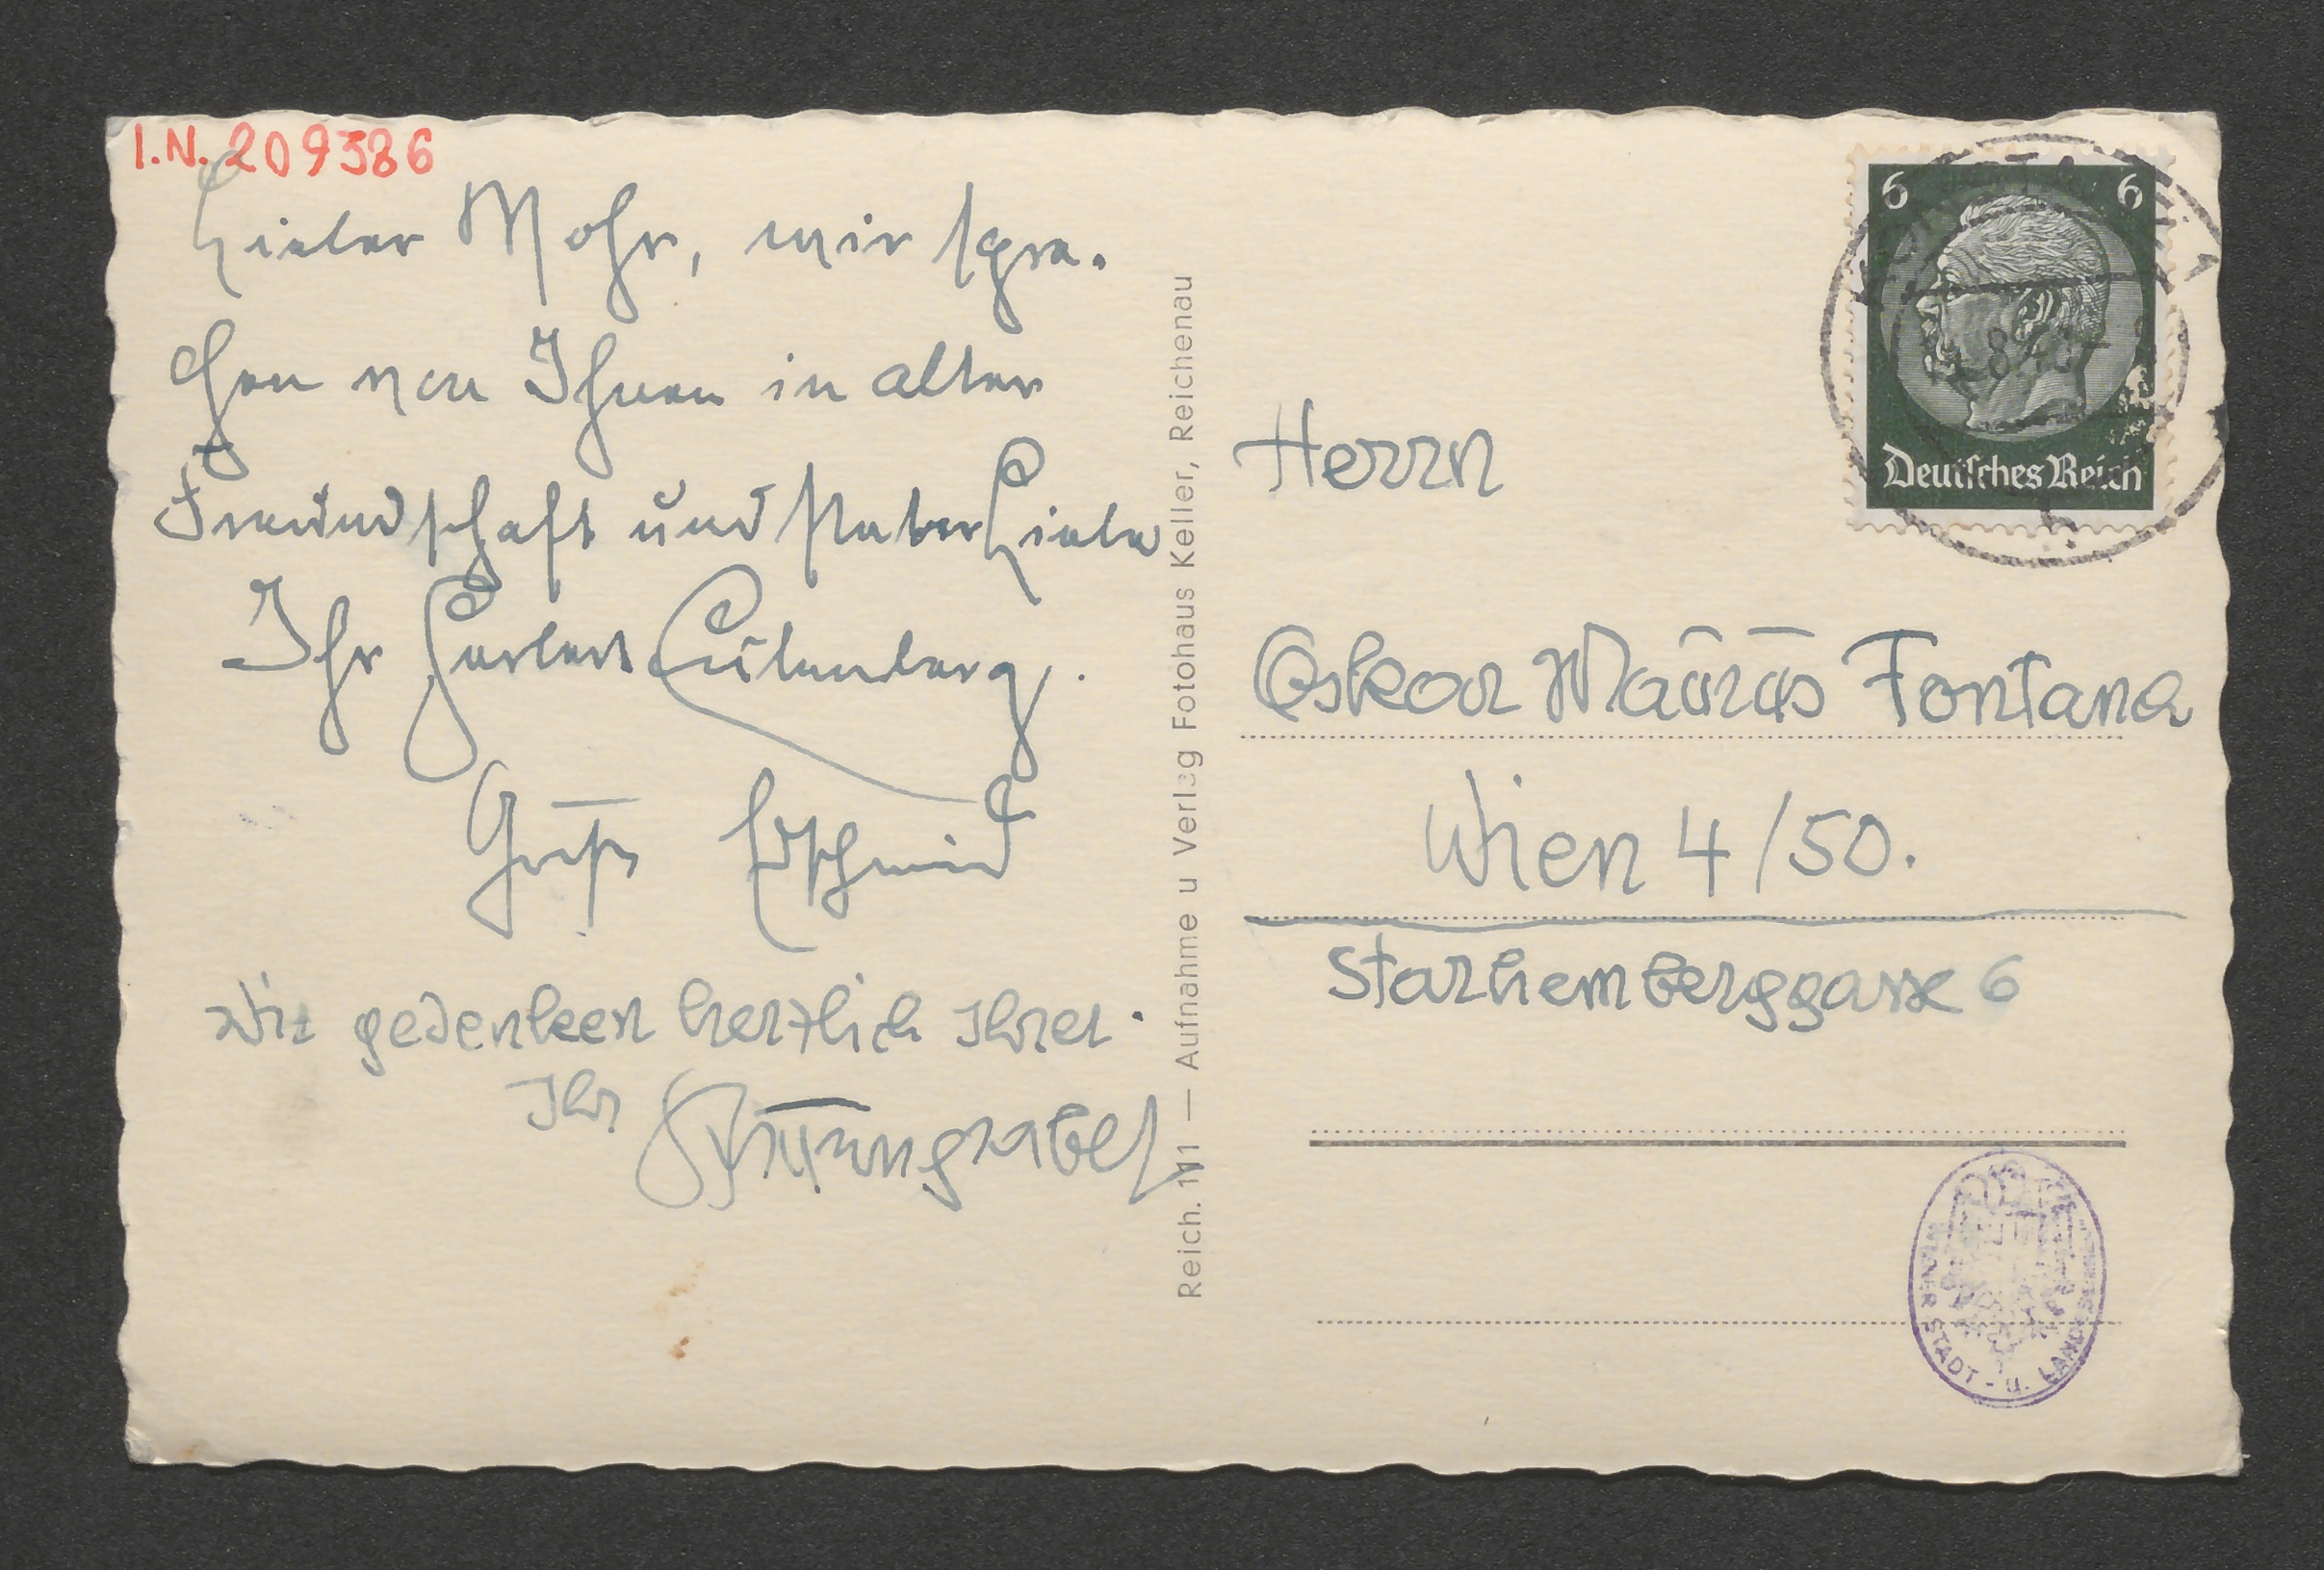 I.N. 209386
Lieber Mohr, wir spra-
chen von Ihnen in alter
Freundschaft und steter Liebe
Ihr Herbert Eulenberg.
Gruß Edschmid
Wir gedenken herzlich Ihrer.
Ihr
Reich. 111 — Aufnahme u Verlag Fotohaus Keller, Reichenau
6 6
Deutsches Reich
Herrn
Oskar Maurus Fontana
Wien 4/50.
Starhemberggasse 6
WIENER STADT- u. LANDES